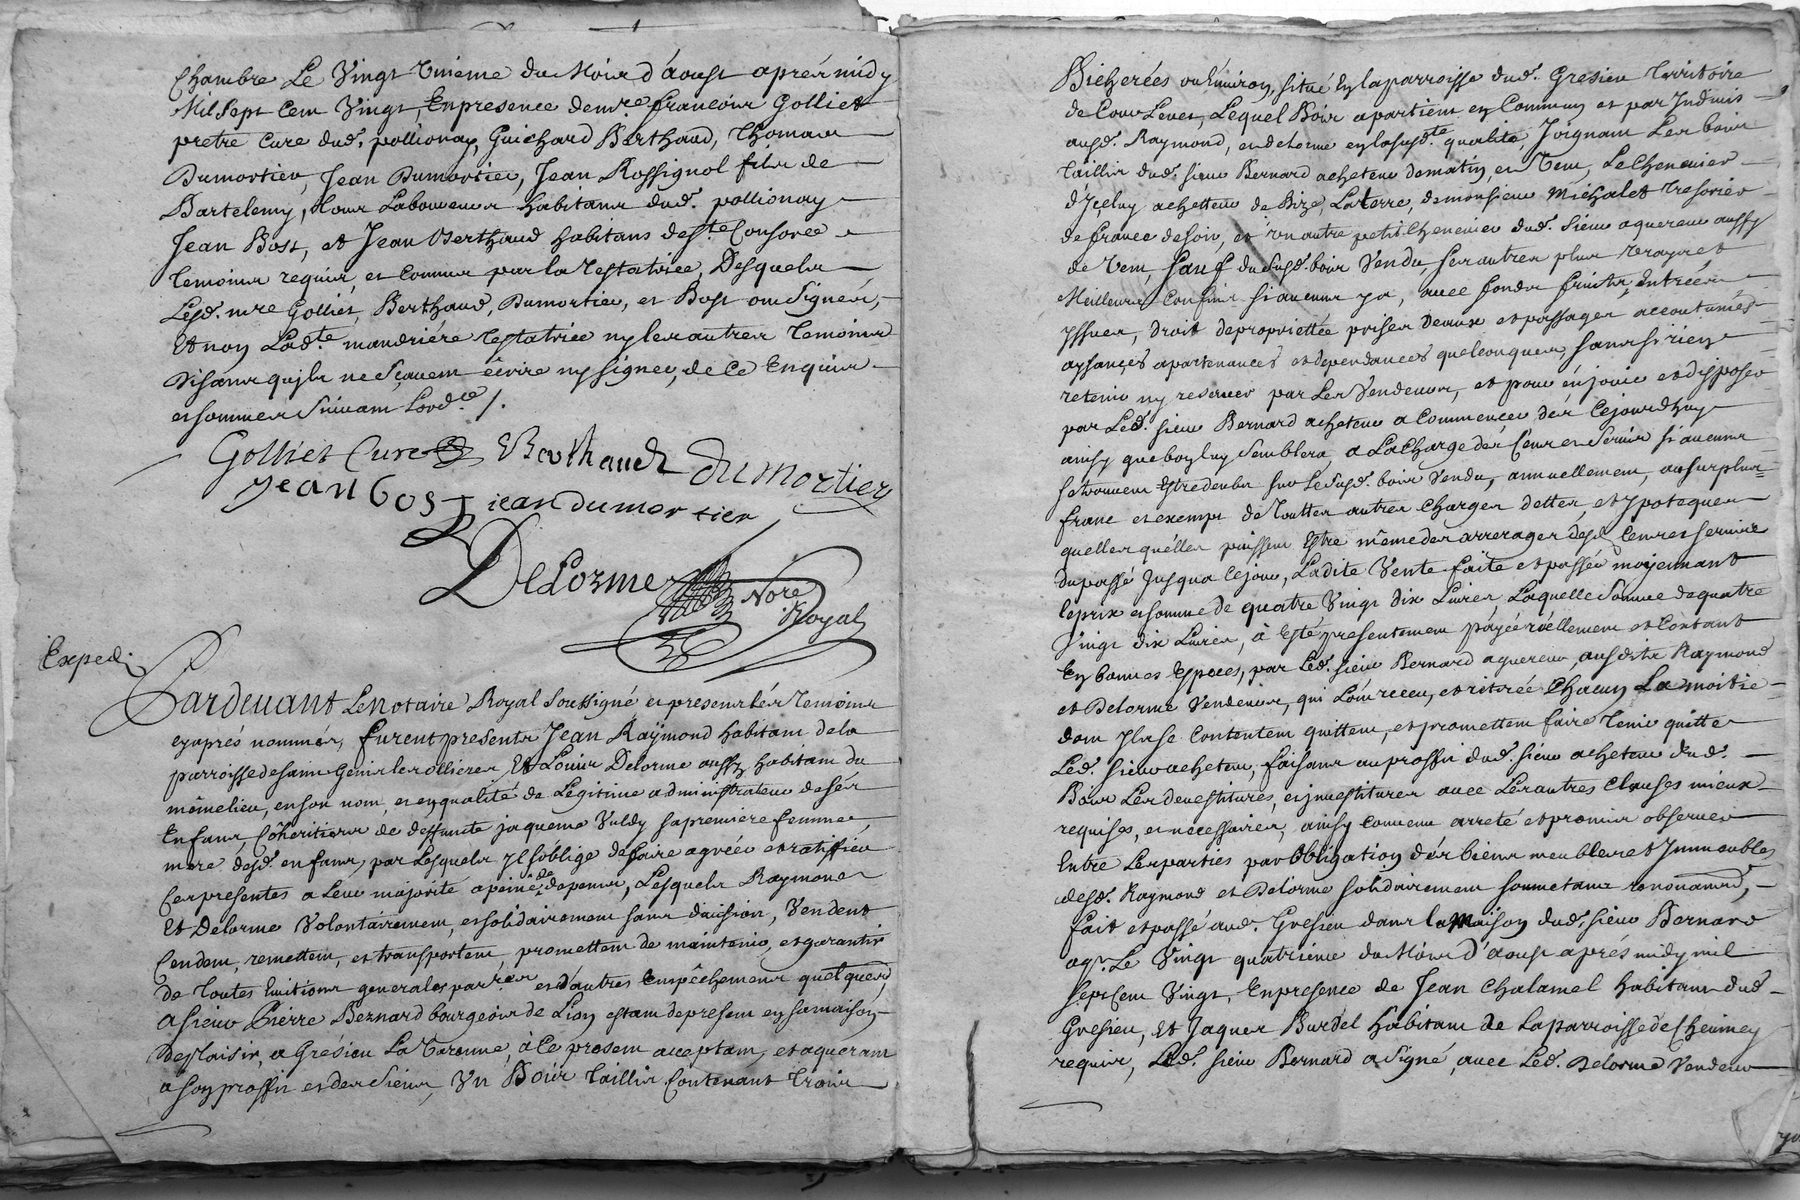 Chambre Le Vingt Unieme du Mois d'aoust aprés midy
Mil sept Cent Vingt, En presence de mre francois Golliet
pretre Curé dud. pollionay, Guichard Berthaud, Thomas
Dumortier, Jean Dumortier, Jean Rossignol fils de
Bartelemy, tous Laboureurs habitans dud. pollionay
Jean Bost, et Jean Berthaud habitans de Ste Consorce
temoins requis, et connus par la Testatrice, Desquels
Lesd. mre Golliet, Berthaud, Dumortier, et Bost ont signés,
Et non Ladte mandriére testatrice ny les autres temoins
disans qu'ils ne sçavent écrire ny signer, de ce Enquis
et sommes suivant Lordce /.
Golliet Curé Berthaud du mortier
jean bost jean du mortier
Delorme Nore
Royal
Exped.
Pardevant Le Notaire Royal soussigné et presents les temoins
cy aprés nommés, furent presents Jean Raÿmond habitant de la
parroisse de saint Genis les ollieres, Et Louis Delorme aussy habitant du
même lieu, en son nom, et en qualité de Légitime administrateur de sés
Enfans, Cohéritiers de deffunte jaquema Vuldy sa premiere femme
mere desd. enfans, par Lesquels yl soblige de faire agréer et ratiffier
Ces presentes a Leur majorité a peine de depens, Lesquels Raymond
Et Delorme Volontairement, et solidairement sans division, Vendent
Cendent, remettent, et transportent, promettent de maintenir, et garantir
de toutes Evitions generales par rer et d'autres Empêchements quelques
a sieur Pierre Bernard bourgeois de Lion estant de present en sa maison
de plaisir, a Grésieu La Varenne, à ce present acceptant, et aquerant
a son proffit et des siens, Un Bois taillis Contenant trois
Bicherées ou Environ, situé En la parroisse dud. Gresieu territoire
de Lequel Bois apartient en Commun et par Indivis
ausd. Raymond, et delorme en la susdte qualité, Joignant Les bois
taillis dud. sieur Bernard acheteur de matin, et Vent, Le Chenevier
d'Jceluy achetteur de Bize, La terre de monsieur Michalet tresorier
de france de soir, et un autre petit Chenevier dud. sieur aquereur aussy
de Vent, sauf du susd. bois Vendu, ses autres plus Vrays et
Meilleurs Confins si aucuns y a, avec fonds fruits, Entrées
yssues, Droit de propriettée prises deaux et passages accoutumés
aysançes apartenances et dependances quelconques, sans si rien
retenir ny reserver par Les Vendeurs, et pour én jouir et disposer
par Led. sieur Bernard acheteur a Commencer dés Cejourdhuy
ainsy que bon luy semblera a La Charge dés Cens et Servis si aucuns
se trouvent Estre deubs sur Le susd. bois Vendu, annuellement, au surplus
franc et exempt de toutter autres Charges dettes, et ypoteques
quelles quélles puissent Estre même des arrerages desd. Cens et servis
du passé jusqua Cejour, Ladite Vente faite et passée moyennant
le prix et somme de quatre Vingt dix Livres Laquelle somme de quatre
Vingt dix Livres, à Esté presentement payée réellement et Contant
En bonnes Especes, par Led. sieur Bernard aquereur, ausdits Raymond
et Delorme Vendeurs, qui Lont receu, et retirée Chacun La moitié
dont yls se Contentent quittent, et promettent faire tenir quitte
Led. sieur acheteur, faisans au proffit dud. sieur acheteur dud.
Bois Les devestitures, et jnvestitures avec Les autres Clauses mieux
requises, et necessaires, ainsy Convenu arreté et promis observer
Entre Les parties par obligation dés biens meubles et Jmmeubles
desd. Raymond et Delorme solidairement soumettans renonçans,
fait et passé aud. Gresieu dans la maison dud. sieur Bernard
aqr. Le Vingt quatrieme du Mois D'aoust aprés midy mil
sept Cent Vingt, En presence de Jean Chalamel habitant dud.
Gresieu, Et Jaques Burdel habitant de La parroisse de Cheviney
requis, Led. sieur Bernard a signé, avec Led. Delorme Vendeur